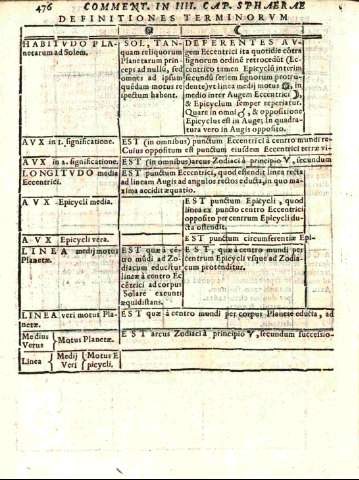 476 COMMENT. IN IIII. CAP. SPHAERAE
DEFINITIONES TERMINORVM
HABITVDO PLA-
netarum ad Solem.
SOL, TAN-
quam reliquorum
Planetarum prin-
ceps ad nullũ, sed
omnes ad ipsum
quẽdam motus re-
spectum habent.
DEFERENTES AV-
gem Eccentrici ita quotidie cõtra
signorum ordinẽ retrocedũt (Ec-
centrico tamen Epicyclũ interim
secundũ seriem signorum protru-
dente) vt linea medij motus ☉, in
medio inter Augem Eccentrici ☽,
& Epicyclum semper reperiatur.
Quare in omni ☌, & oppositione
Epicyclus est in Auge; In quadra-
tura vero in Augis opposito.
AVX in 1. significatione.
EST (in omnibus) punctum Eccentrici à centro mundi re-
Cuius oppositum est punctum eiusdem Eccentrici terræ vi-
AVX in 2. significatione.
EST (in omnibus) arcus Zodiaci à principio ♈, secundum
LONGITVDO media
Eccentrici.
EST punctum Eccentrici, quod ostendit linea recta
ad lineam Augis ad angulos rectos educta, in quo ma-
xima accidit æquatio.
AVX Epicycli media.
EST punctum Epicycli, quod
linea ex puncto centro Eccentrici
opposito per centrum Epicycli du-
cta ostendit.
AVX Epicycli vera.
EST punctum circumferentiæ Epi-
LINEA medij motus
Planetæ.
EST quæ à cẽ-
tro mũdi ad Zo-
diacum educitur
lineæ à centro Ec
cẽtrici ad corpus
Solare exeunti
æquidistans.
EST, quæ à centro mundi per
centrum Epicycli vsque ad Zodia-
cum protenditur.
LINEA veri motus Pla-
netæ.
EST quæ à centro mundi per corpus Planetæ educta, ad
Medius
Verus
Motus Planetæ.
EST arcus Zodiaci à principio ♈, secundum successio-
Linea
Medij
Veri
Motus E
picycli.